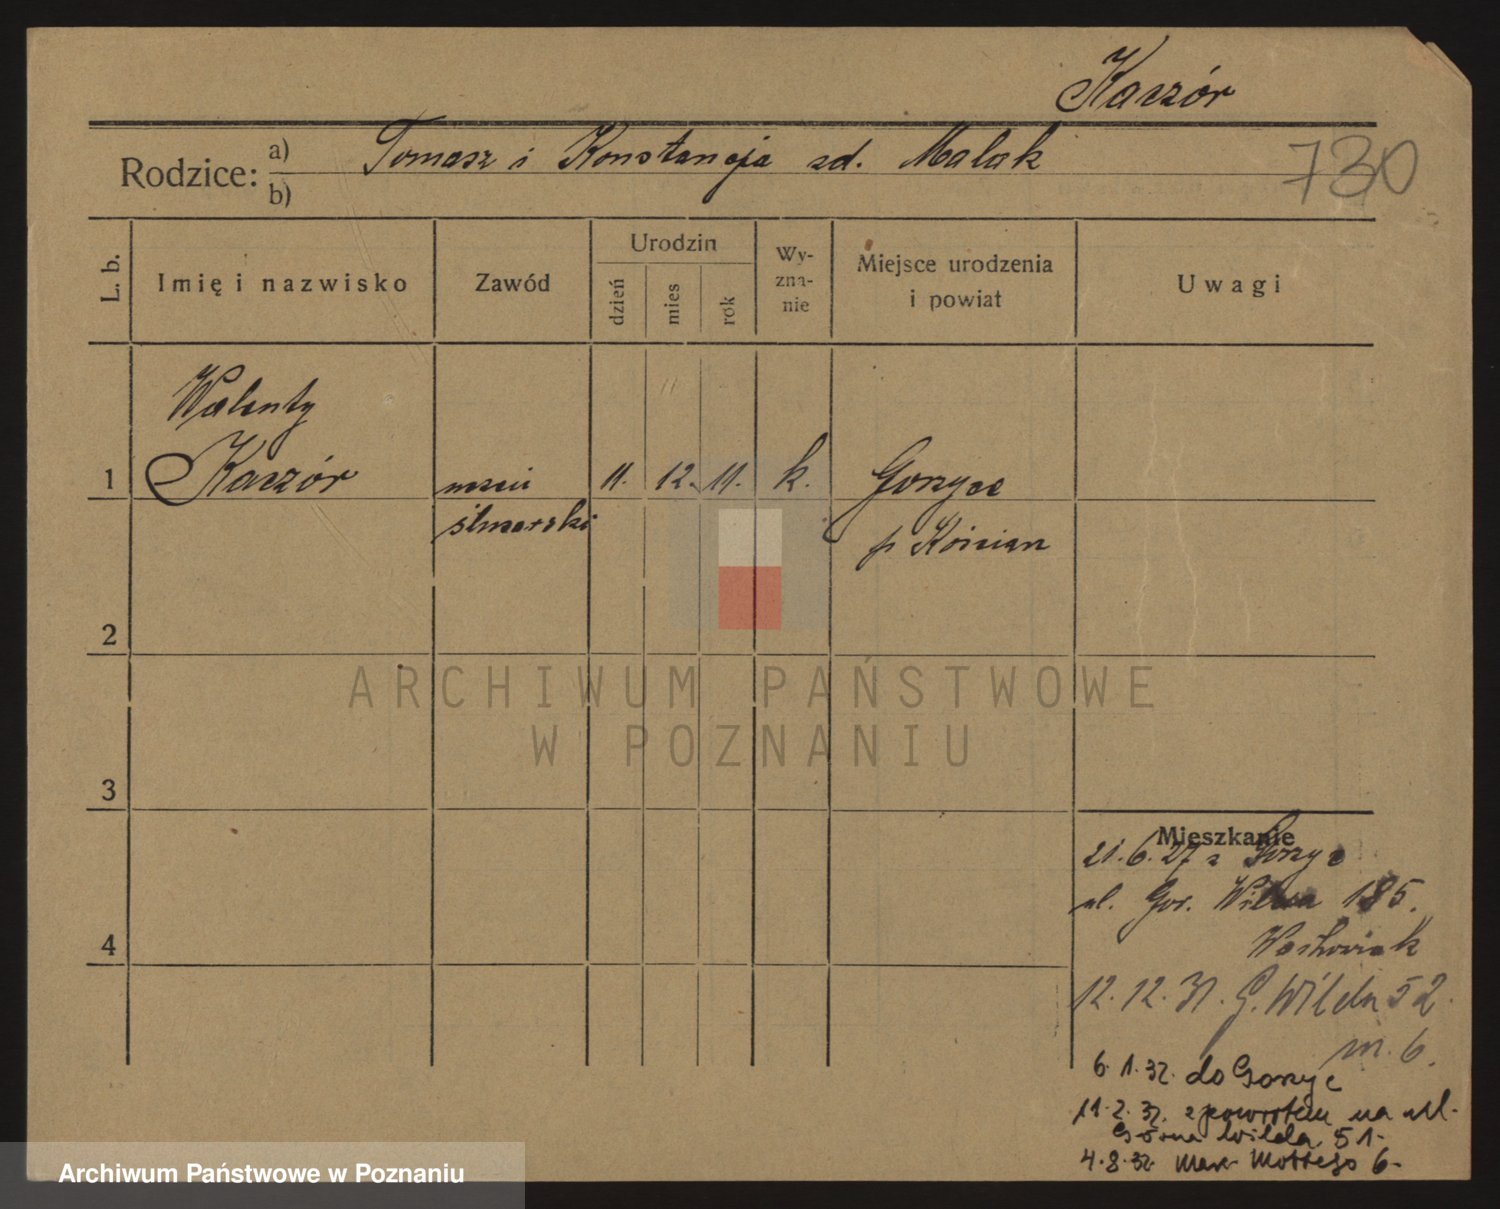 Kaczór
Rodzice: a) Tomasz i Konstancja zd. Malak
b)
730
L. b.
Imię i nazwisko
Zawód
Urodzin
dzień
mies
rok
Wy-
zna-
nie
Miejsce urodzenia
i powiat
Uwagi
Walenty
1 Kaczór uczeń 11. 12. 11. k. Gorzyce
ślusarski p Kościan
2
3
4
ARCHIWUM PAŃSTWOWE
W POZNANIU
Mieszkanie
21.6.27 z Gorzyc
ul. Gór. Wilda 185.
12.12.31. G. Wilda 52
m. 6.
6.1.32. do Gorzyc
11.2.32. z powrotem na ul.
Górna Wilda 51.
4.8.32. Mar. Mottego 6.
Archiwum Państwowe w Poznaniu